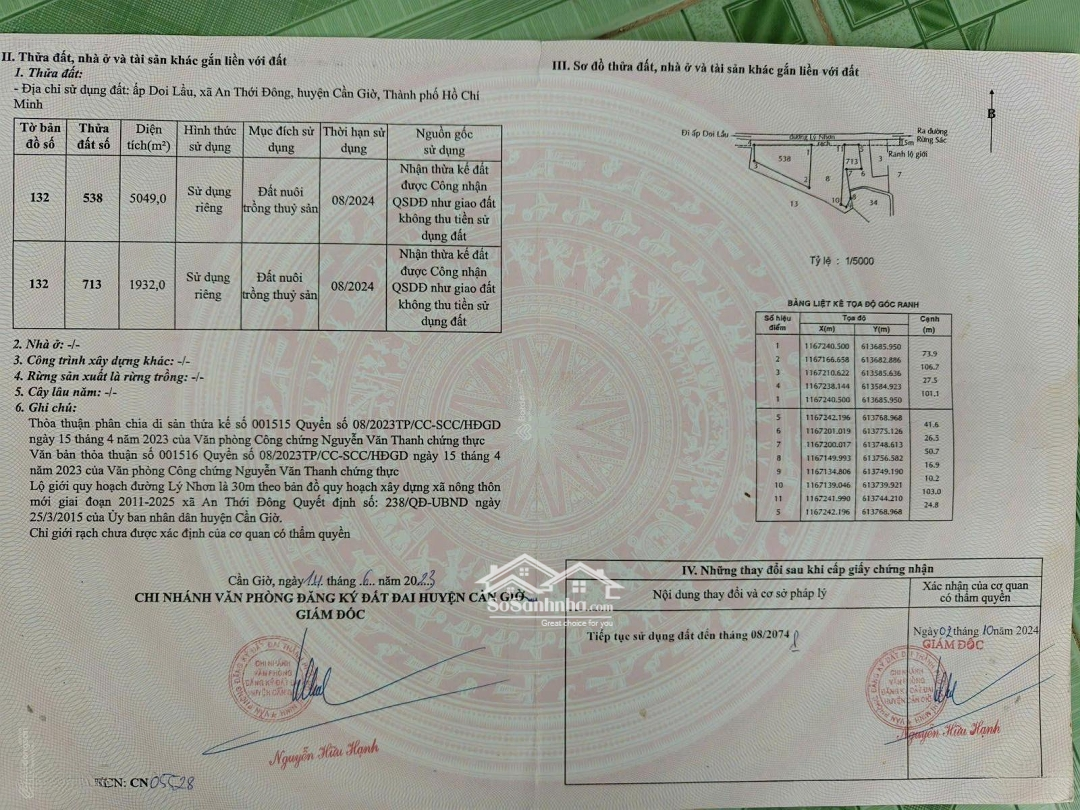 II. Thửa đất, nhà ở và tài sản khác gắn liền với đất
1. Thửa đất:
- Địa chỉ sử dụng đất: ấp Doi Lầu, xã An Thới Đông, huyện Cần Giờ, Thành phố Hồ Chí
Minh
Tờ bản đồ số | Thửa đất số | Diện tích(m²) | Hình thức sử dụng | Mục đích sử dụng | Thời hạn sử dụng | Nguồn gốc sử dụng
132 | 538 | 5049,0 | Sử dụng riêng | Đất nuôi trồng thuỷ sản | 08/2024 | Nhận thừa kế đất được Công nhận QSDĐ như giao đất không thu tiền sử dụng đất
132 | 713 | 1932,0 | Sử dụng riêng | Đất nuôi trồng thuỷ sản | 08/2024 | Nhận thừa kế đất được Công nhận QSDĐ như giao đất không thu tiền sử dụng đất
2. Nhà ở: -/-
3. Công trình xây dựng khác: -/-
4. Rừng sản xuất là rừng trồng: -/-
5. Cây lâu năm: -/-
6. Ghi chú:
Thỏa thuận phân chia di sản thừa kế số 001515 Quyển số 08/2023TP/CC-SCC/HĐGD
ngày 15 tháng 4 năm 2023 của Văn phòng Công chứng Nguyễn Văn Thanh chứng thực
Văn bản thỏa thuận số 001516 Quyển số 08/2023TP/CC-SCC/HĐGD ngày 15 tháng 4
năm 2023 của Văn phòng Công chứng Nguyễn Văn Thanh chứng thực
Lộ giới quy hoạch đường Lý Nhơn là 30m theo bản đồ quy hoạch xây dựng xã nông thôn
mới giai đoạn 2011-2025 xã An Thới Đông Quyết định số: 238/QĐ-UBND ngày
25/3/2015 của Ủy ban nhân dân huyện Cần Giờ.
Chỉ giới rạch chưa được xác định của cơ quan có thẩm quyền
Cần Giờ, ngày 14 tháng 6 năm 2023
CHI NHÁNH VĂN PHÒNG ĐĂNG KÝ ĐẤT ĐAI HUYỆN CẦN GIỜ
GIÁM ĐỐC
Nguyễn Hữu Hạnh
CN 05528
III. Sơ đồ thửa đất, nhà ở và tài sản khác gắn liền với đất
B
Đi ấp Doi Lầu
đường Lý Nhơn
rạch
Ra đường
Rừng Sác
15m
Ranh lộ giới
538
713
8
3
7
13
34
Tỷ lệ : 1/5000
BẢNG LIỆT KÊ TỌA ĐỘ GÓC RANH
Số hiệu điểm | Tọa độ X(m) | Y(m) | Cạnh (m)
1 1167240.500 613685.950
73.9
2 1167166.658 613682.886
106.7
3 1167210.622 613585.636
27.5
4 1167238.144 613584.923
101.1
1 1167240.500 613685.950
5 1167242.196 613768.968
41.6
6 1167201.019 613775.126
26.5
7 1167200.017 613748.613
50.7
8 1167149.993 613756.582
16.9
9 1167134.806 613749.190
10.2
10 1167139.046 613739.921
103.0
11 1167241.990 613744.210
24.8
5 1167242.196 613768.968
SoSanhnha.com
Great choice for you
IV. Những thay đổi sau khi cấp giấy chứng nhận
Nội dung thay đổi và cơ sở pháp lý
Xác nhận của cơ quan
có thẩm quyền
Tiếp tục sử dụng đất đến tháng 08/2074
Ngày 02 tháng 10 năm 2024
GIÁM ĐỐC
Nguyễn Hữu Hạnh